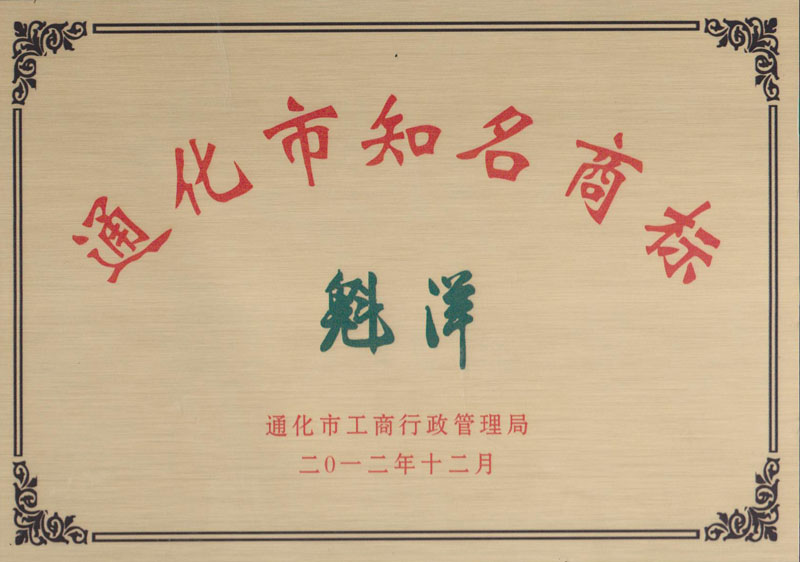 通化市知名商标
魁洋
通化市工商行政管理局
二0一二年十二月